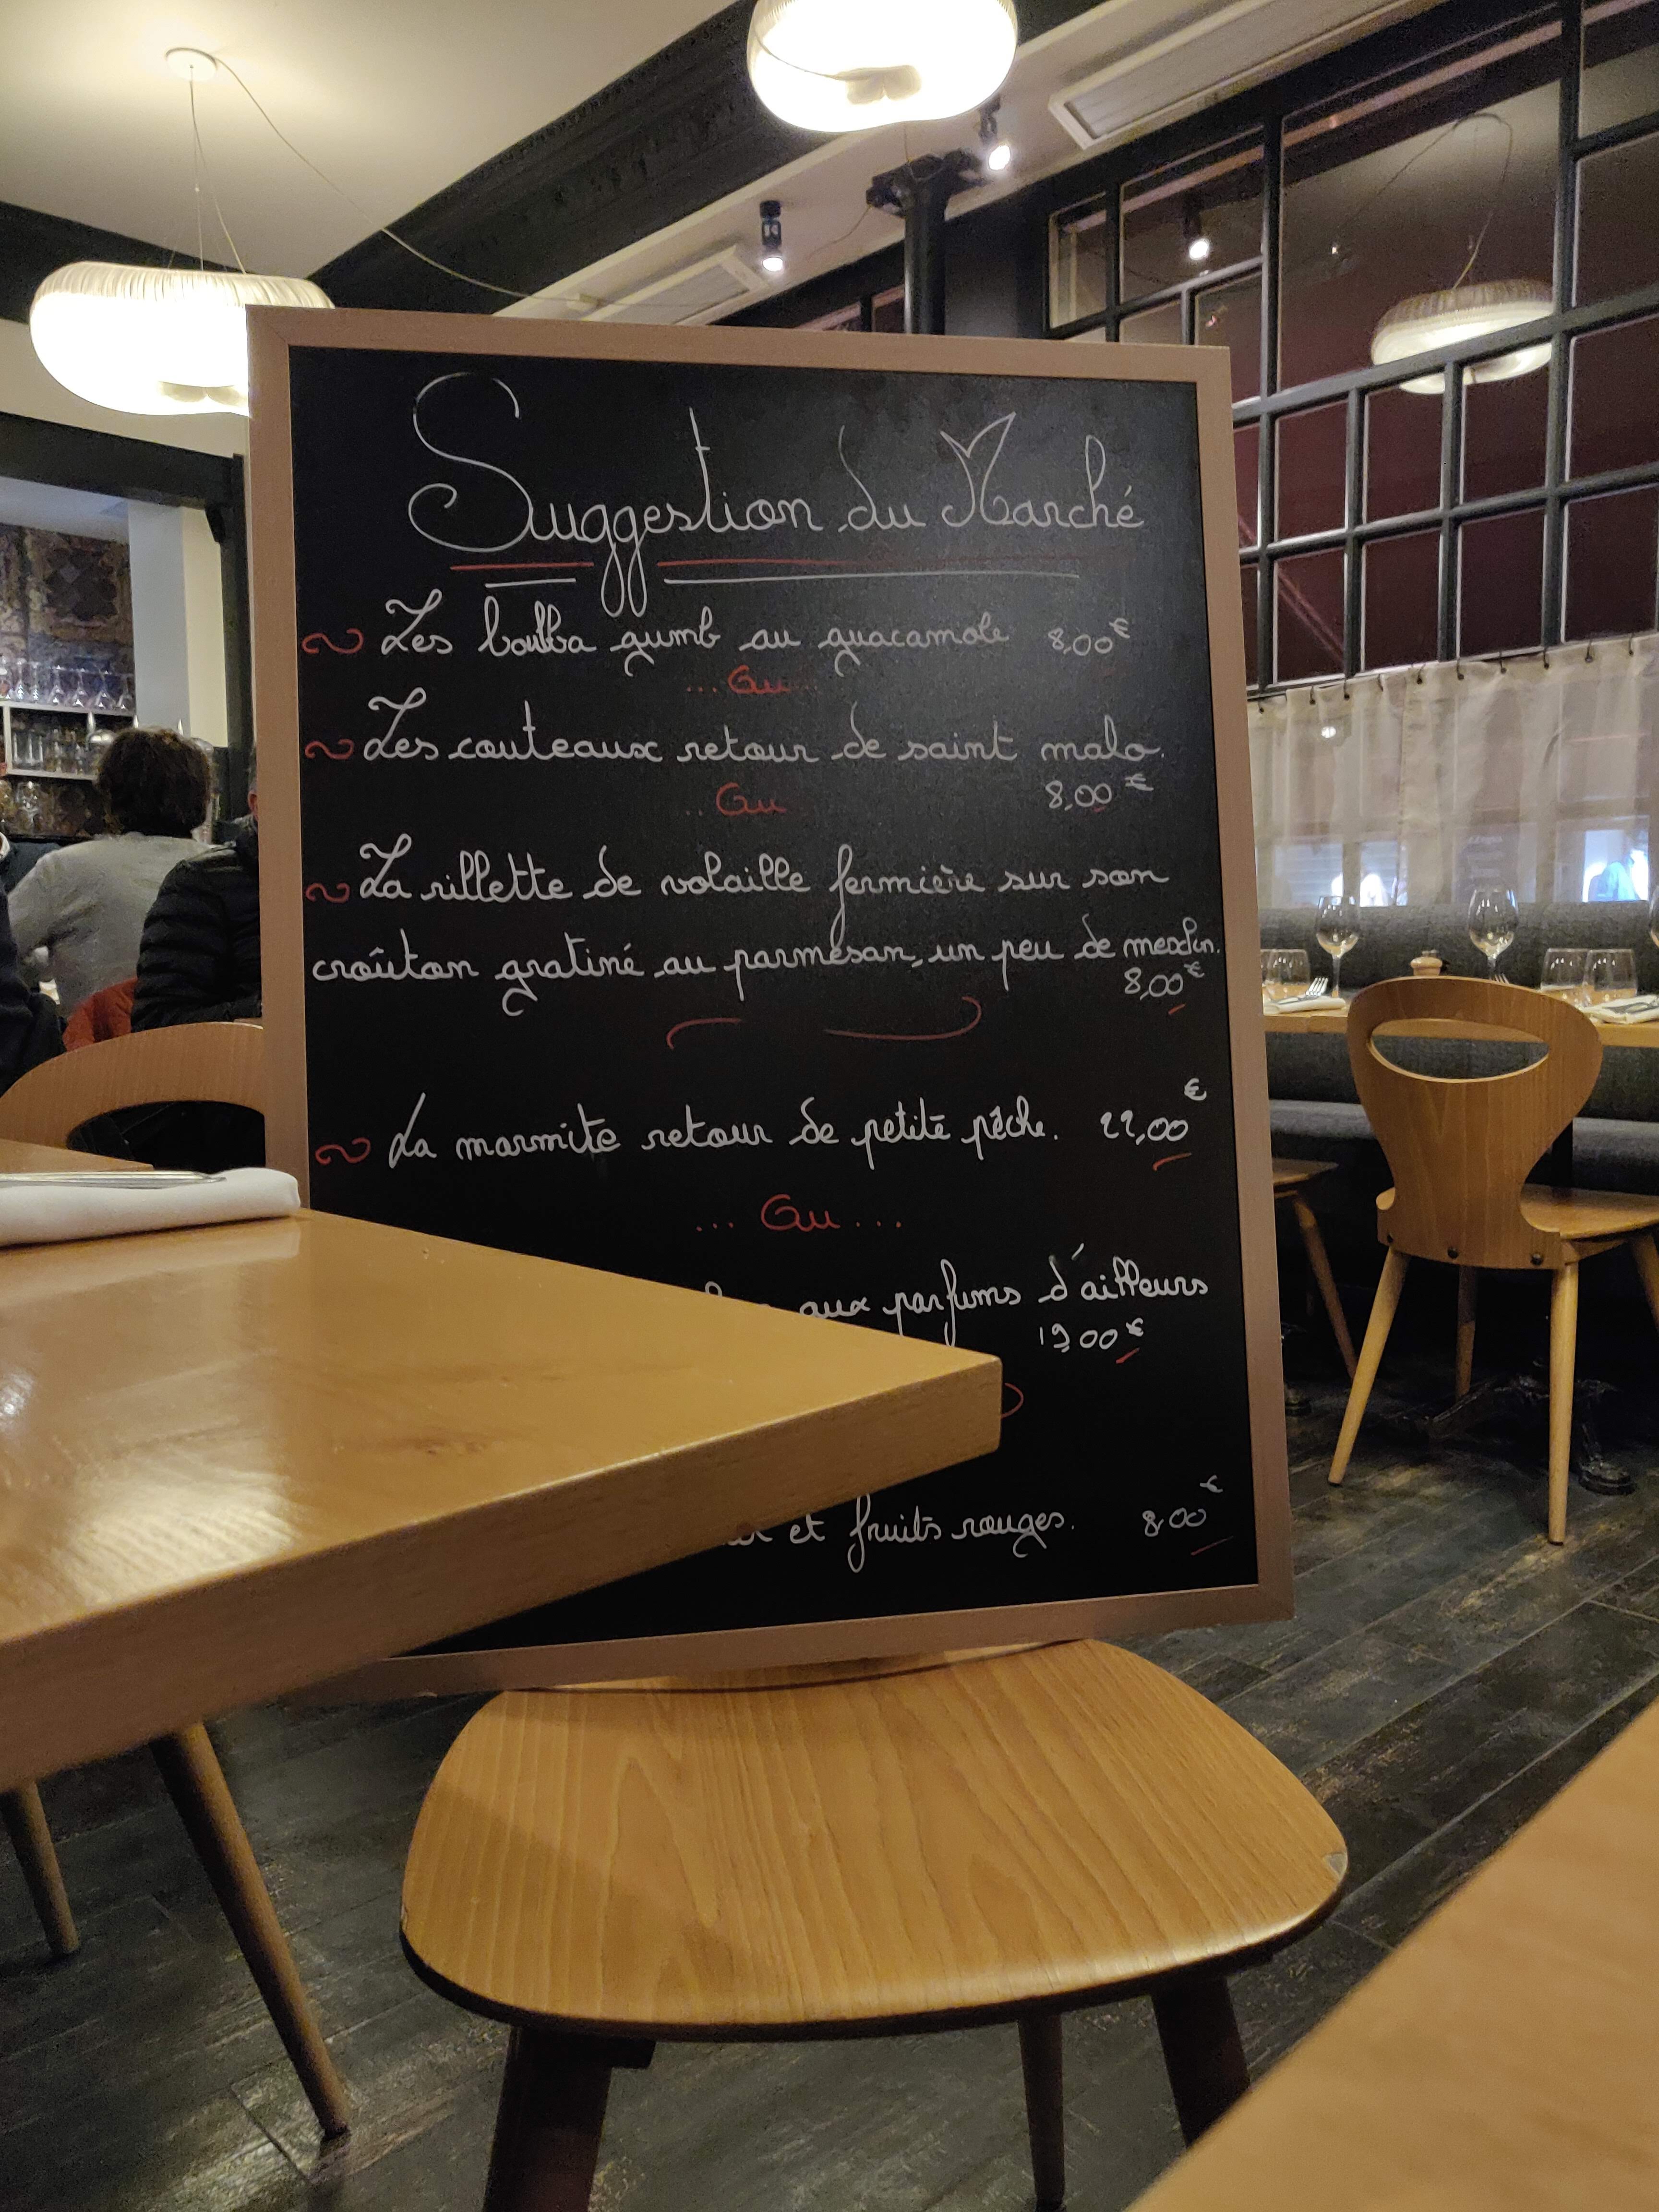 Suggestion du Marché
Les boulba gumb au guacamole 8,00€
... Ou ...
Les couteaux retour de saint malo.
.. Ou 8,00€
La rillette de volaille fermière sur son
croûton gratiné au parmesan, un peu de mesclun.
8,00€
La marmite retour de petite pêche. 22,00€
... Ou ...
aux parfums d'ailleurs
19,00€
et fruits rouges. 8.00€